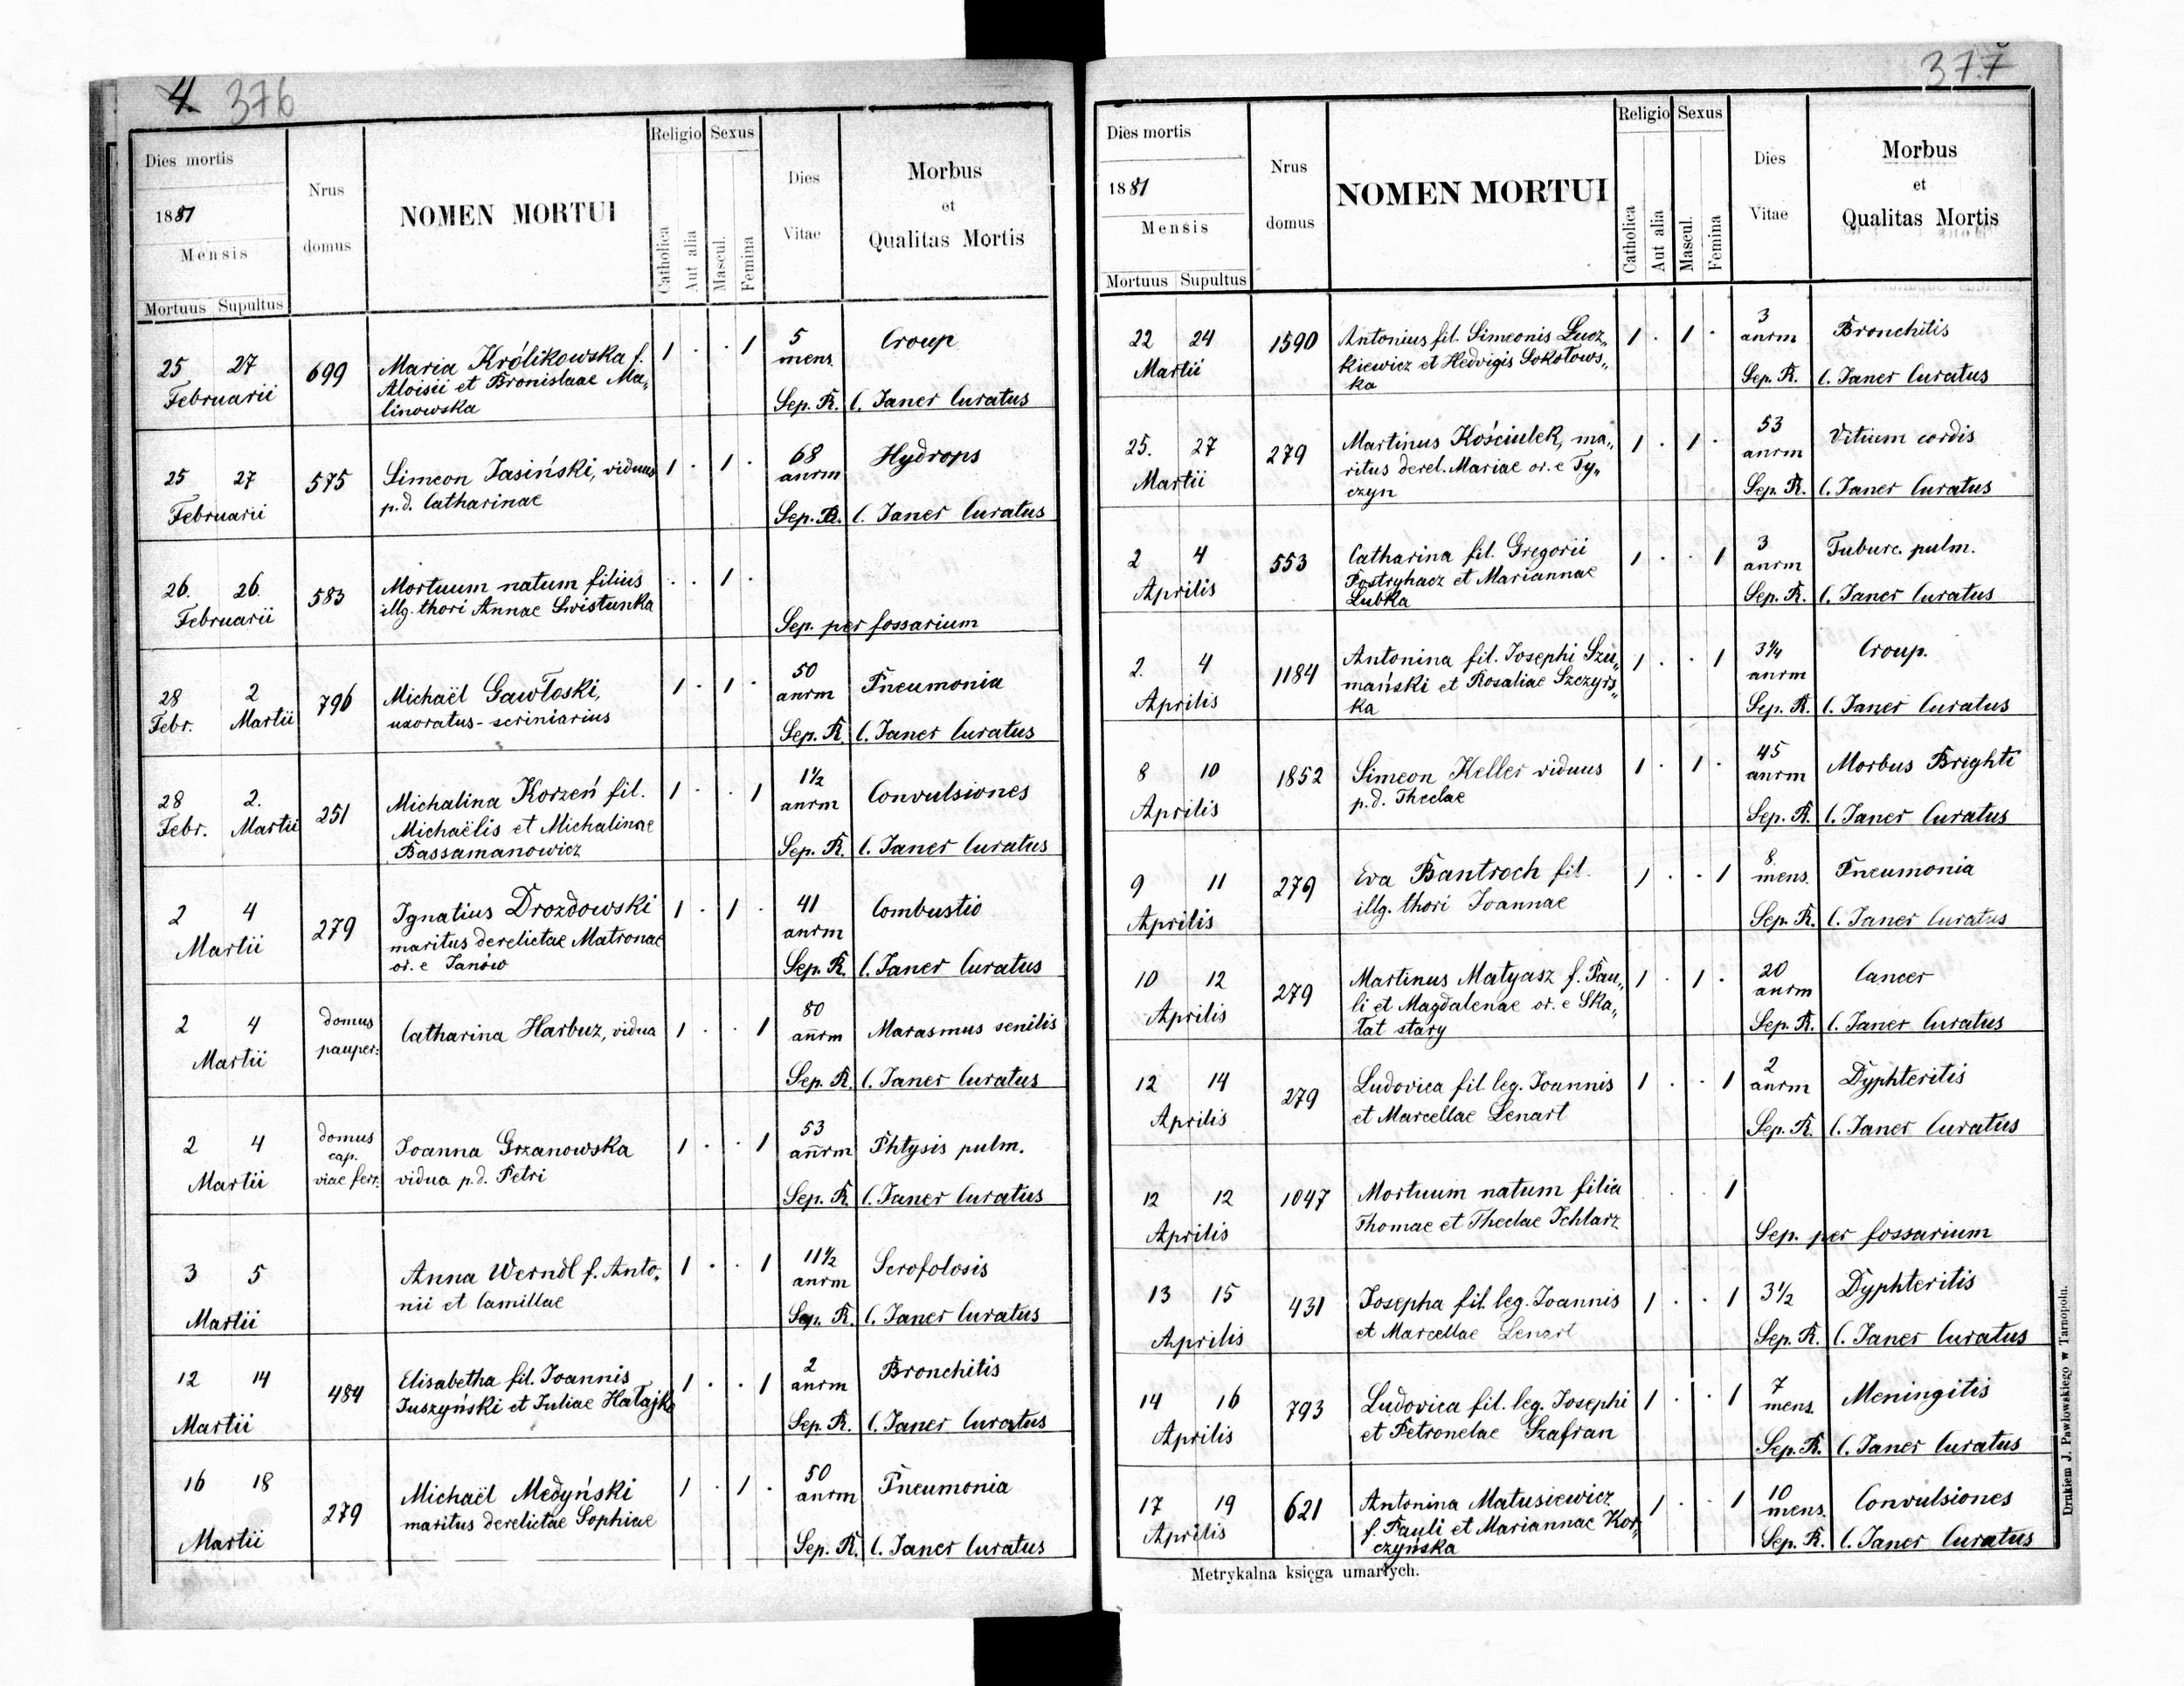 4. 376
Dies mortis
1881
Mensis
Mortuus Supultus
Nrus
domus
NOMEN MORTUI
Religio Sexus
Catholica
Aut alia
Mascul.
Femina
Dies
Vitae
Morbus
et
Qualitas Mortis
25 27
Februarii
699
Maria Królikowska f.
Aloisii et Bronislaae Ma„
linowska
1 . . 1
5
mens.
Croup
Sep. R. C. Janer Curatus
25 27
Februarii
575
Simeon Jasiński, viduus
p.d. Catharinae
1 . 1 .
68
anrm
Hydrops
Sep. R. C. Janer Curatus
26. 26.
Februarii
583
Mortuum natum filius
illg. thori Annae Swistunka
. . 1 .
Sep. per fossarium
28 2
Febr. Martii
796
Michaël Gawłoski,
uxoratus - scriniarius
1 . 1 .
50
anrm
Pneumonia
Sep. R. C. Janer Curatus
28 2.
Febr. Martii
251
Michalina Korzeń fil.
Michaëlis et Michalinae
Bassamanowicz
1 . . 1
1½
anrm
Convulsiones
Sep. R. C. Janer Curatus
2 4
Martii
279
Ignatius Drozdowski
maritus derelictae Matronae
or. e Janów
1 . 1 .
41
anrm
Combustio
Sep. R. C. Janer Curatus
2 4
Martii
domus
pauper:
Catharina Harbuz, vidua
1 . . 1
80
anrm
Marasmus senilis
Sep. R. C. Janer Curatus
2 4
Martii
domus
cap.
viae ferr.
Joanna Grzanowska
vidua p.d. Petri
1 . . 1
53
anrm
Phtysis pulm.
Sep. R. C. Janer Curatus
3 5
Martii
Anna Werndl f. Anto„
nii et Camillae
1 . . 1
11½
anrm
Scrofolosis
Sep. R. C. Janer Curatus
12 14
Martii
484
Elisabetha fil. Joannis
Juszyński et Juliae Hałajko
1 . . 1
2
anrm
Bronchitis
Sep. R. C. Janer Curatus
16 18
Martii
279
Michaël Medyński
maritus derelictae Sophiae
1 . 1 .
50
anrm
Pneumonia
Sep. R. C. Janer Curatus
377
Dies mortis
1881
Mensis
Mortuus Supultus
Nrus
domus
NOMEN MORTUI
Religio Sexus
Catholica
Aut alia
Mascul.
Femina
Dies
Vitae
Morbus
et
Qualitas Mortis
22 24
Martii
1590
Antonius fil. Simeonis Lucz„
kiewicz et Hedvigis Sokołows„
ka
1 . 1 .
3
anrm
Bronchitis
Sep. R. C. Janer Curatus
25. 27
Martii
279
Martinus Kościulek, ma„
ritus derel. Mariae or. e Ty„
czyn
1 . 1 .
53
anrm
Vitium cordis
Sep. R. C. Janer Curatus
2 4
Aprilis
553
Catharina fil. Gregorii
Postryhacz et Mariannae
Lubka
1 . . 1
3
anrm
Tuburc. pulm.
Sep. R. C. Janer Curatus
2. 4
Aprilis
1184
Antonina fil. Josephi Szu„
mański et Rosaliae Szczyrs„
ka
1 . . 1
3¼
anrm
Croup.
Sep. R. C. Janer Curatus
8 10
Aprilis
1852
Simeon Keller viduus
p.d. Theclae
1 . 1 .
45
anrm
Morbus Brighti
Sep. R. C. Janer Curatus
9 11
Aprilis
279
Eva Bantroch fil.
illg. thori Joannae
1 . . 1
8
mens.
Pneumonia
Sep. R. C. Janer Curatus
10 12
Aprilis
279
Martinus Matyasz f. Pau„
li et Magdalenae or. e Ska„
łat stary
1 . 1 .
20
anrm
Cancer
Sep. R. C. Janer Curatus
12 14
Aprilis
279
Ludovica fil. leg. Joannis
et Marcellae Lenart
1 . . 1
2
anrm
Dyphteritis
Sep. R. C. Janer Curatus
12 12
Aprilis
1047
Mortuum natum filia
Thomae et Theclae Schlarz
. . 1
Sep. per fossarium
13 15
Aprilis
431
Josepha fil. leg. Joannis
et Marcellae Lenart
1 . . 1
3½
Dyphteritis
Sep. R. C. Janer Curatus
14 16
Aprilis
793
Ludovica fil. leg. Josephi
et Petronelae Szafran
1 . . 1
7
mens.
Meningitis
Sep. R. C. Janer Curatus
17 19
Aprilis
621
Antonina Matusiewicz
f. Pauli et Mariannae Kor„
czyńska
1 . . 1
10
mens.
Convulsiones
Sep. R. C. Janer Curatus
Metrykalna księga umarłych.
Drukiem J. Pawłowskiego w Tarnopolu.